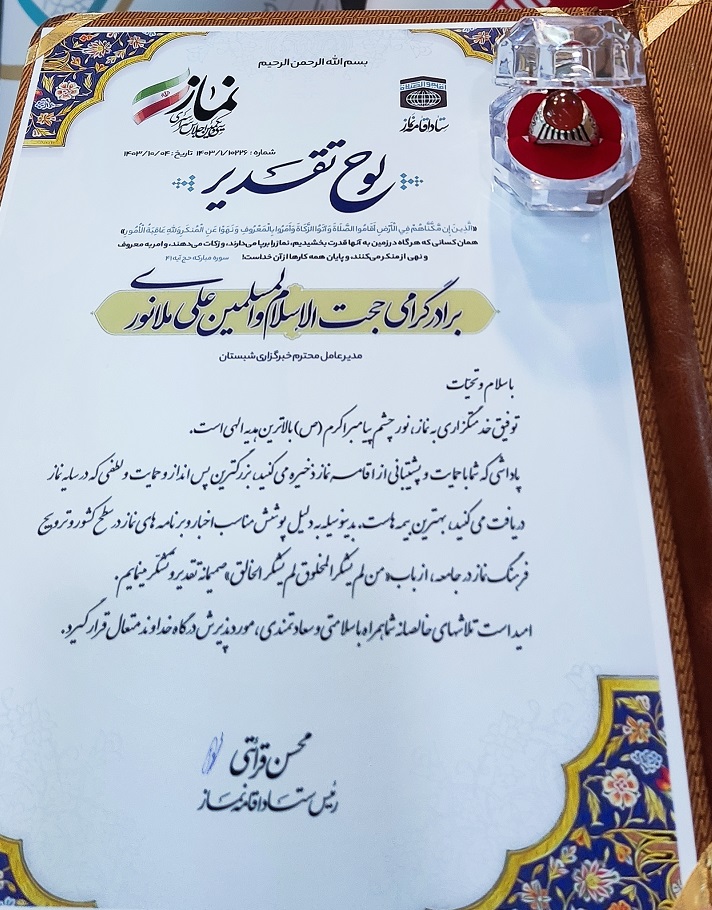 بسم الله الرحمن الرحیم
نماز
ستاد اقامه نماز
شماره: ۱۴۰۳/۱/۱۰۲۲۶ تاریخ: ۱۴۰۳/۱۰/۰۴
لوح تقدیر
«الَّذِینَ إِن مَّکَّنَّاهُمْ فِی الْأَرْضِ أَقَامُوا الصَّلَاةَ وَآتَوُا الزَّکَاةَ وَأَمَرُوا بِالْمَعْرُوفِ وَنَهَوْا عَنِ الْمُنکَرِ وَلِلَّهِ عَاقِبَةُ الْأُمُورِ»
همان کسانی که هرگاه در زمین به آنها قدرت بخشیدیم، نماز را برپا می‌دارند، و زکات می‌دهند، و امر به معروف
و نهی از منکر می‌کنند، و پایان همه کارها از آن خداست! سوره مبارکه حج آیه ۴۱
برادر گرامی حجت الاسلام والمسلمین علی ملانوری
مدیرعامل محترم خبرگزاری شبستان
با سلام و تحیّات
توفیق خدمتگزاری به نماز، نور چشم پیامبر اکرم (ص) بالاترین هدیه الهی است.
پاداشی که شما با حمایت و پشتیبانی از اقامه نماز ذخیره می کنید، بزرگترین پس انداز و حمایت و لطفی که در سایه نماز
دریافت می کنید، بهترین بیمه هاست. بدینوسیله به دلیل پوشش مناسب اخبار و برنامه های نماز در سطح کشور و ترویج
فرهنگ نماز در جامعه، از باب «من لم یشکر المخلوق لم یشکر الخالق» صمیمانه تقدیر و تشکر می‌نمایم.
امید است تلاشهای خالصانه شما همراه با سلامتی و سعادتمندی، مورد پذیرش درگاه خداوند متعال قرار گیرد.
محسن قرائتی
رئیس ستاد اقامه نماز